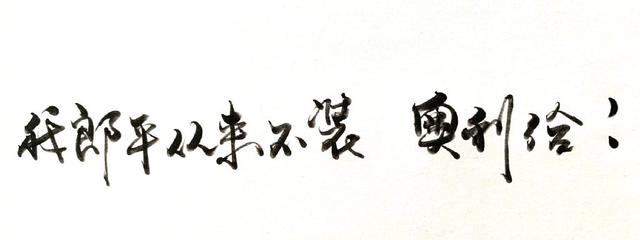 我郎平从来不装 奥利给：